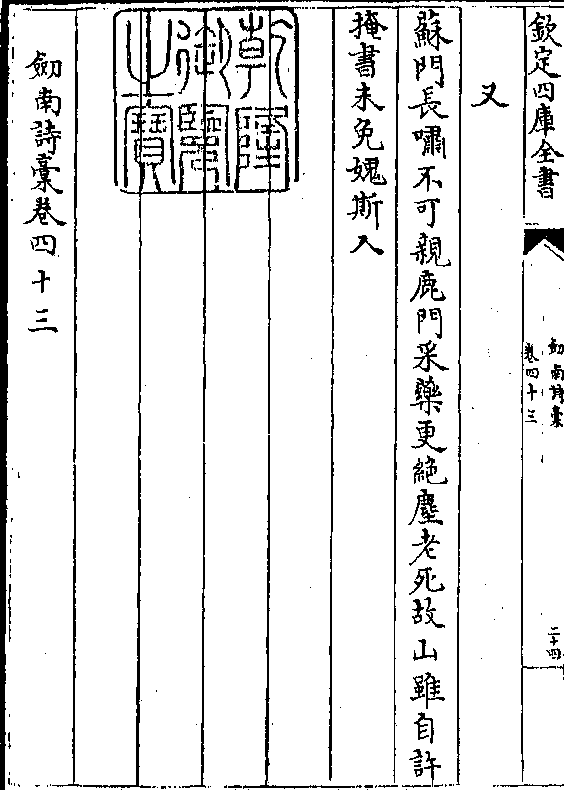 欽定四庫全書
劒南詩稾
卷四十三
二十四
又
蘇門長嘯不可親鹿門采藥更絶塵老死故山雖自許
掩書未免媿斯人
乾隆御覽之寶
劒南詩稾卷四十三